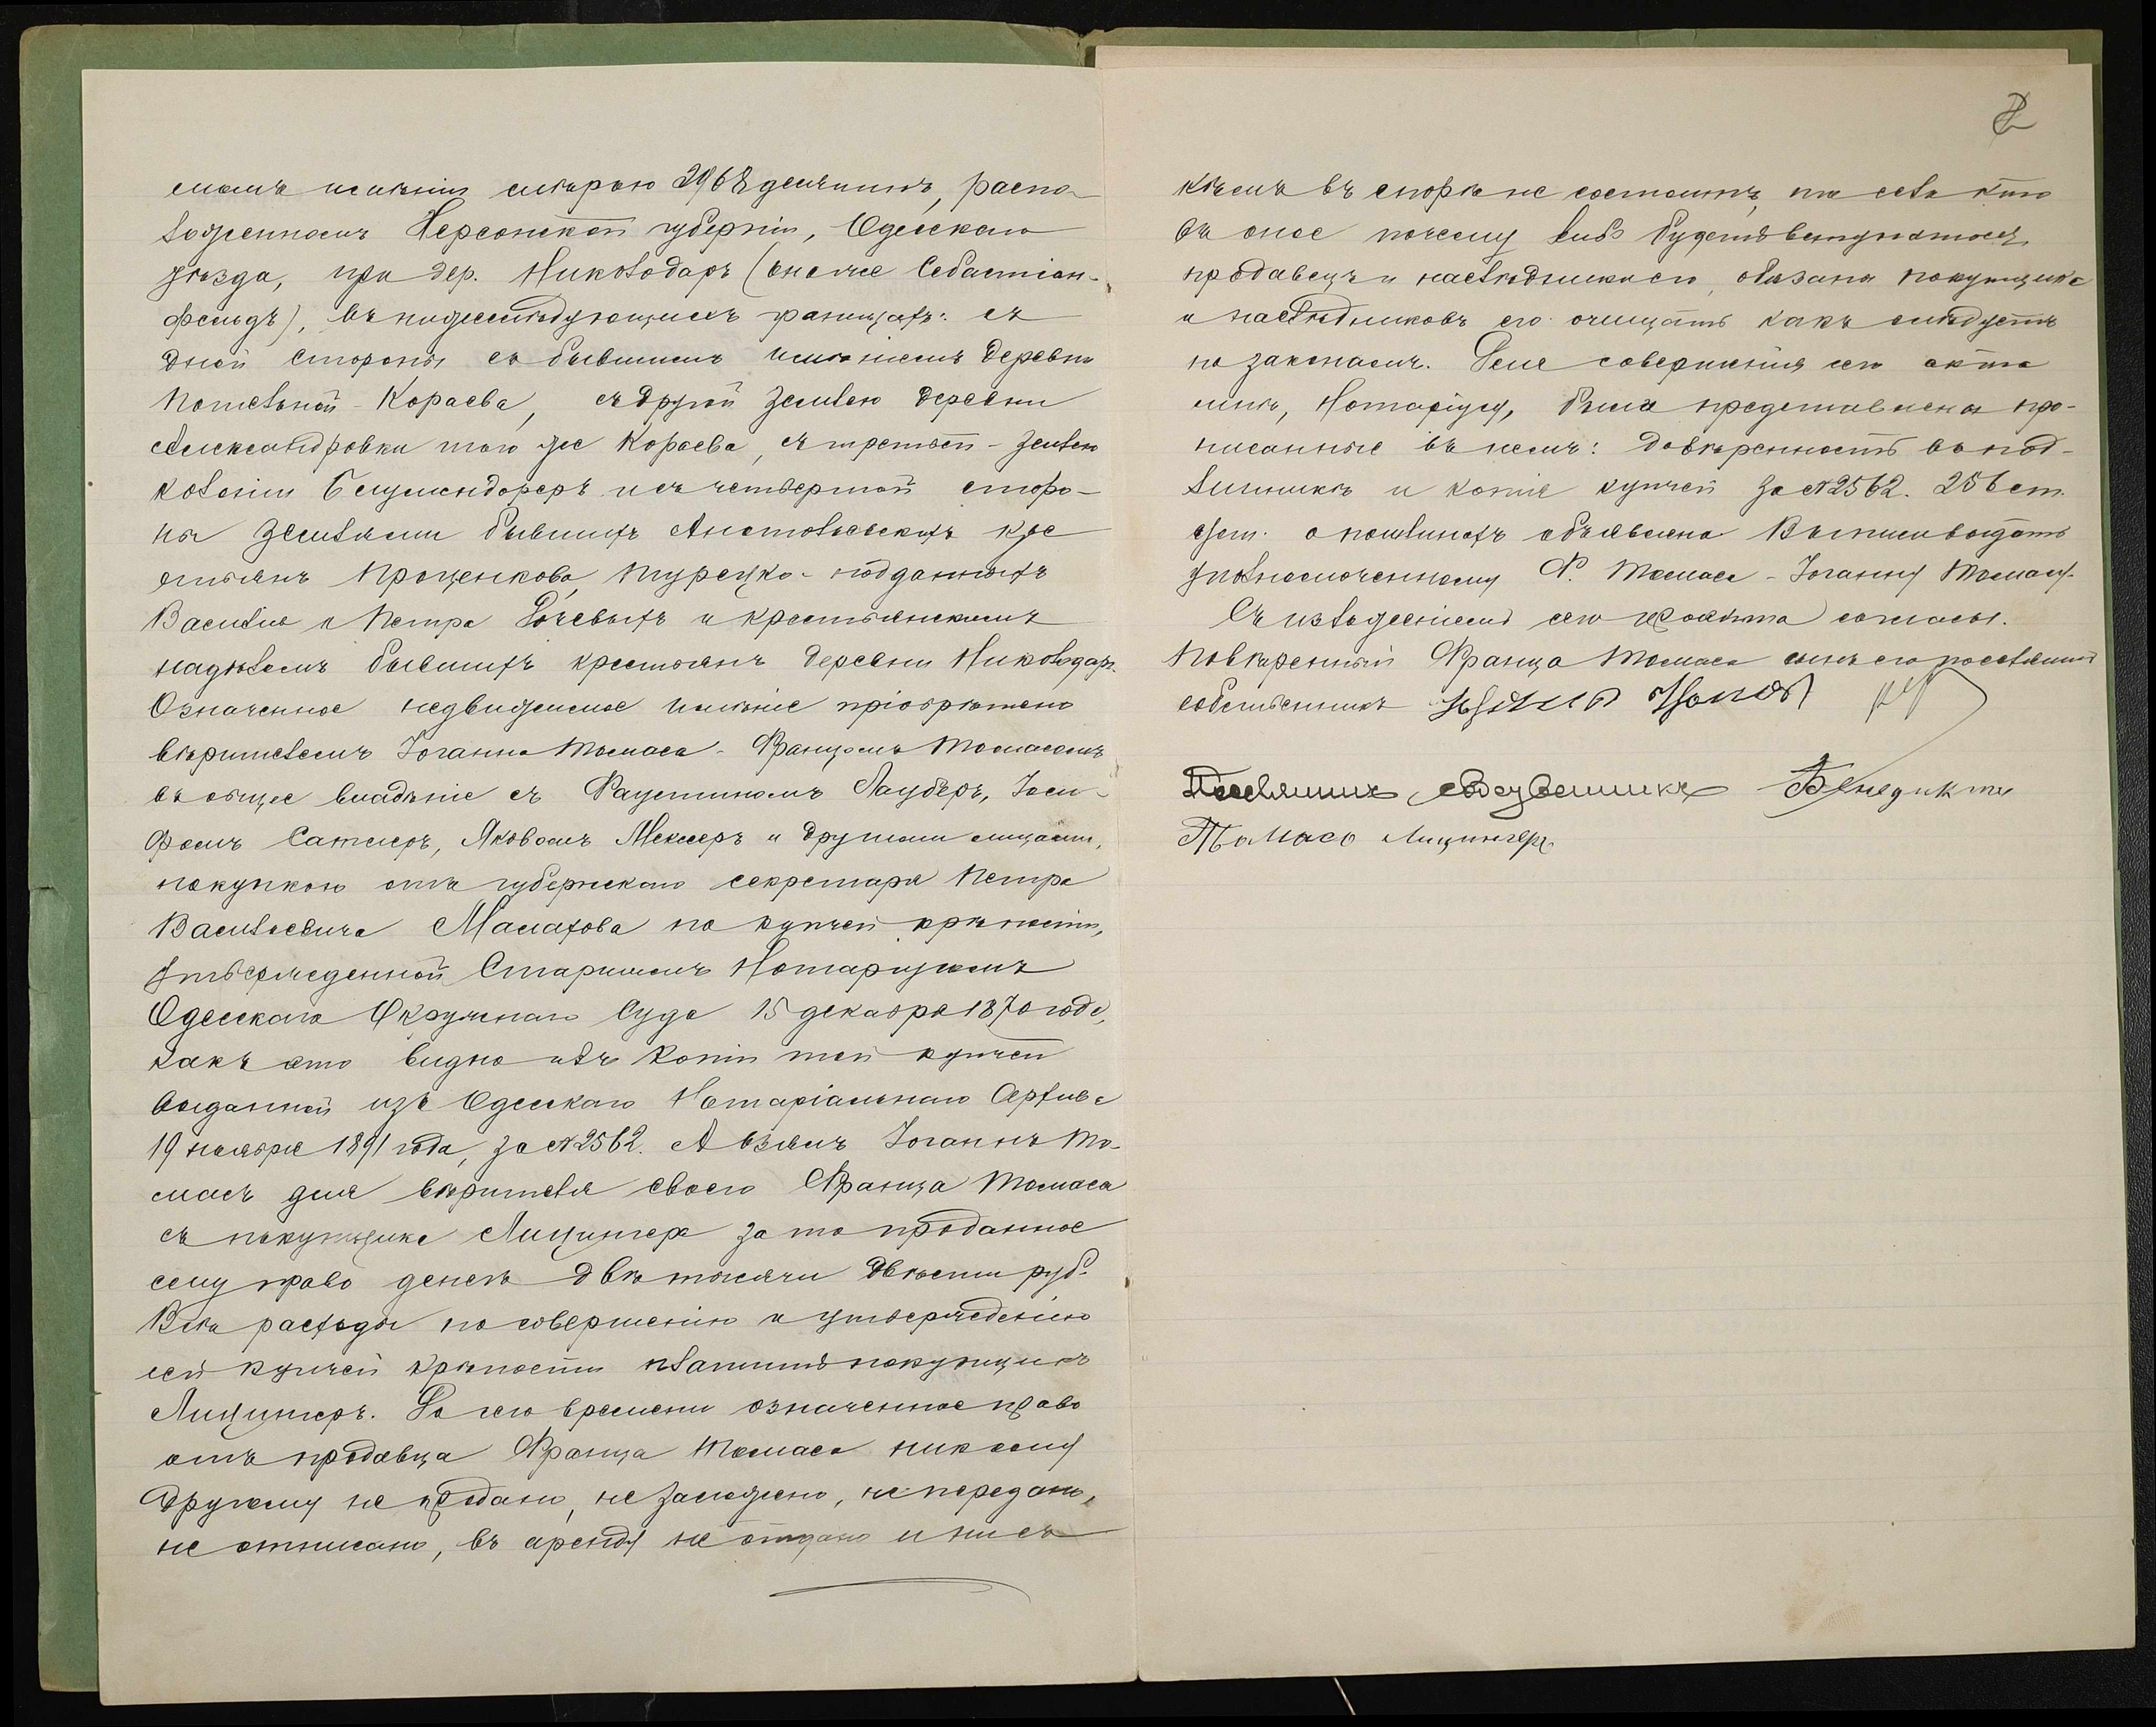 2
момъ имѣніи мѣрою 2968 десятинъ, распо-
ложенномъ Херсонской губерніи, Одесскаго
уѣзда, при дер. Николодаръ (онаже Себастіан-
фельдъ), въ нижеслѣдующихъ границахъ: съ
дной стороны съ бывшимъ имѣніемъ деревни
Кораева, съ другой землею деревни
Александровки того же Кораева, съ третьей - землею
колоніи и съ четвертой сторо-
ны землями бывшихъ Анатольевскихъ кре
стьянъ Проценкова, турецко-подданныхъ
Василія и Петра и крестьянскимъ
надѣломъ бывшихъ крестьянъ деревни Николодаръ.
Означенное недвижимое имѣніе пріобрѣтено
вѣрителемъ Іоганна Томаса - Францомъ Томасомъ
въ общее владѣніе съ Фаустиномъ Лауберъ, Іоси-
фомъ Сатлеръ, Яковомъ Мекслеръ и другими лицами,
покупкою отъ губернскаго секретаря Петра
Васильевича Малахова по купчей крѣпости,
утвержденной Старшимъ Нотаріусомъ
Одесскаго Окружнаго Суда 15 декабря 1870 года,
какъ это видно изъ копіи той купчей
выданной изъ Одесскаго Нотаріальнаго Архива
19 ноября 1891 года, за №2562. А взялъ Іоганнъ То-
масъ для вѣрителя своего Франца Томаса
съ покупщика Лицингера за то проданное
ему право денегъ двѣ тысячи двѣсти руб.
Всѣ расходы по совершенію и утвержденію
сей купчей крѣпости платитъ покупщикъ
Лицингеръ. До сего времени означенное право
отъ продавца Франца Томаса никому
другому не продано, не заложено, не передано,
не отписано, въ аренду не отдано и ни съ
кѣмъ въ спорѣ не состоитъ, то если кто
въ оное почему либо будетъ вступаться,
продавецъ и наслѣдники его, обязаны покупщика
и наслѣдниковъ его очищать какъ слѣдуетъ
по законамъ. Для совершенія сего акта
мнѣ, Нотаріусу, были представлены про-
писанные въ немъ: довѣренность въ под-
линникѣ и копія купчей за №2562. 256 ст.
о пошлинахъ объявлена Выпись выдать
уполномоченному Ф. Томаса - Іоганну Томасу.
Съ изложеніемъ сего проэкта согласны.
Повѣренный Франца Томаса сынъ его поселянинъ
собственникъ
Поселянинъ собственникъ Бенедиктъ
Томасъ Лицингеръ